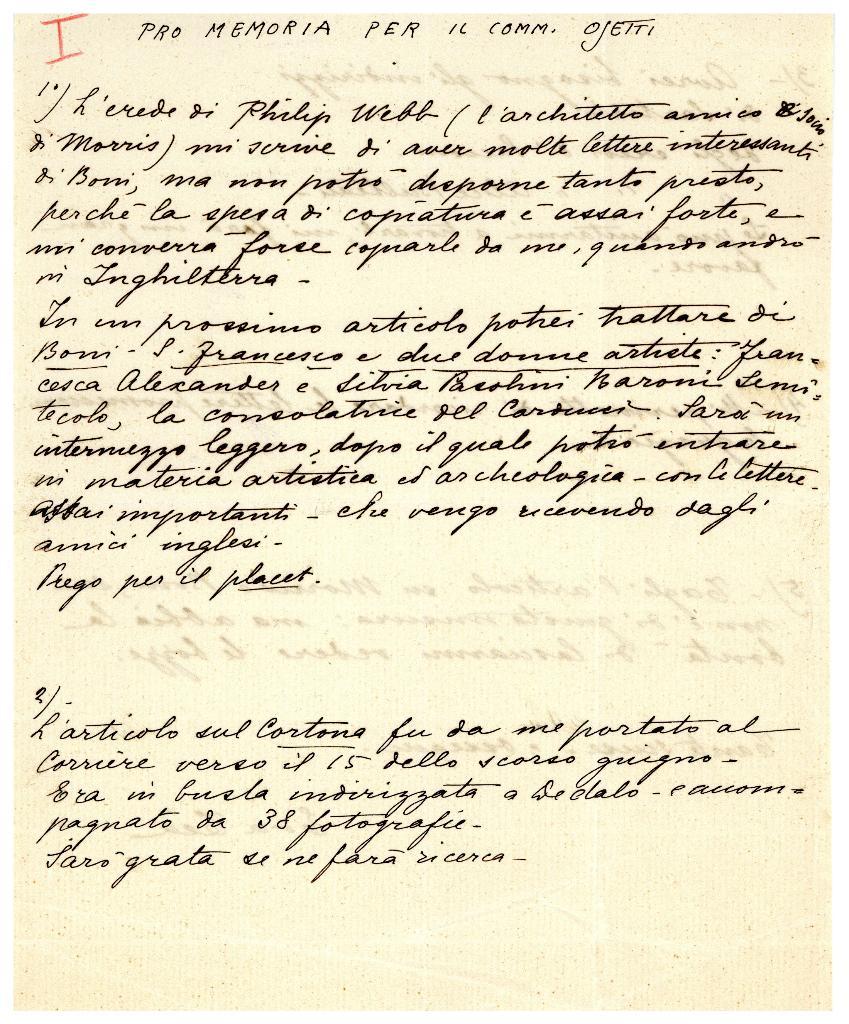 I PRO MEMORIA PER IL COMM. OJETTI
1º) L'erede di Philip Webb (l'architetto amico & socio
di Morris) mi scrive di aver molte lettere interessanti
di Boni, ma non potrò disporne tanto presto,
perchè la spesa di copiatura è assai forte, e
mi converrà forse copiarle da me, quando andrò
in Inghilterra -
In un prossimo articolo potrei trattare di
Boni - S. Francesco e due donne artiste: Fran=
cesca Alexander e Silvia Pasolini Baroni Semi=
tecolo, la consolatrice del Carducci. Sarà un
intermezzo leggero, dopo il quale potrò entrare
in materia artistica ed archeologica - con le lettere -
assai importanti - che vengo ricevendo dagli
amici inglesi -
Prego per il placet.
2) -
L'articolo sul Cortona fu da me portato al
Corriere verso il 15 dello scorso giugno -
Era in busta indirizzata a Dedalo - e accom=
pagnato da 38 fotografie -
Sarò grata se ne farà ricerca -